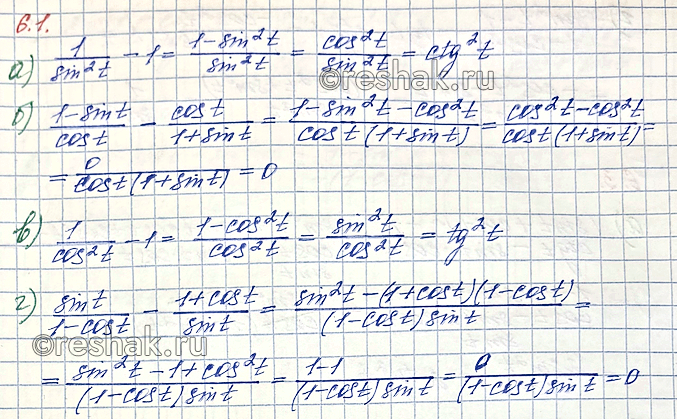 6.1.
а) 1/sin²t − 1 = (1−sin²t)/sin²t = cos²t/sin²t = ctg²t
б) (1−sint)/cost − cost/(1+sint) = (1−sin²t−cos²t)/(cost(1+sint)) = (cos²t−cos²t)/(cost(1+sint)) =
= 0/(cost(1+sint)) = 0
в) 1/cos²t − 1 = (1−cos²t)/cos²t = sin²t/cos²t = tg²t
г) sint/(1−cost) − (1+cost)/sint = (sin²t−(1+cost)(1−cost))/((1−cost)sint) =
= (sin²t−1+cos²t)/((1−cost)sint) = (1−1)/((1−cost)sint) = 0/((1−cost)sint) = 0
©reshak.ru
©reshak.ru
©reshak.ru